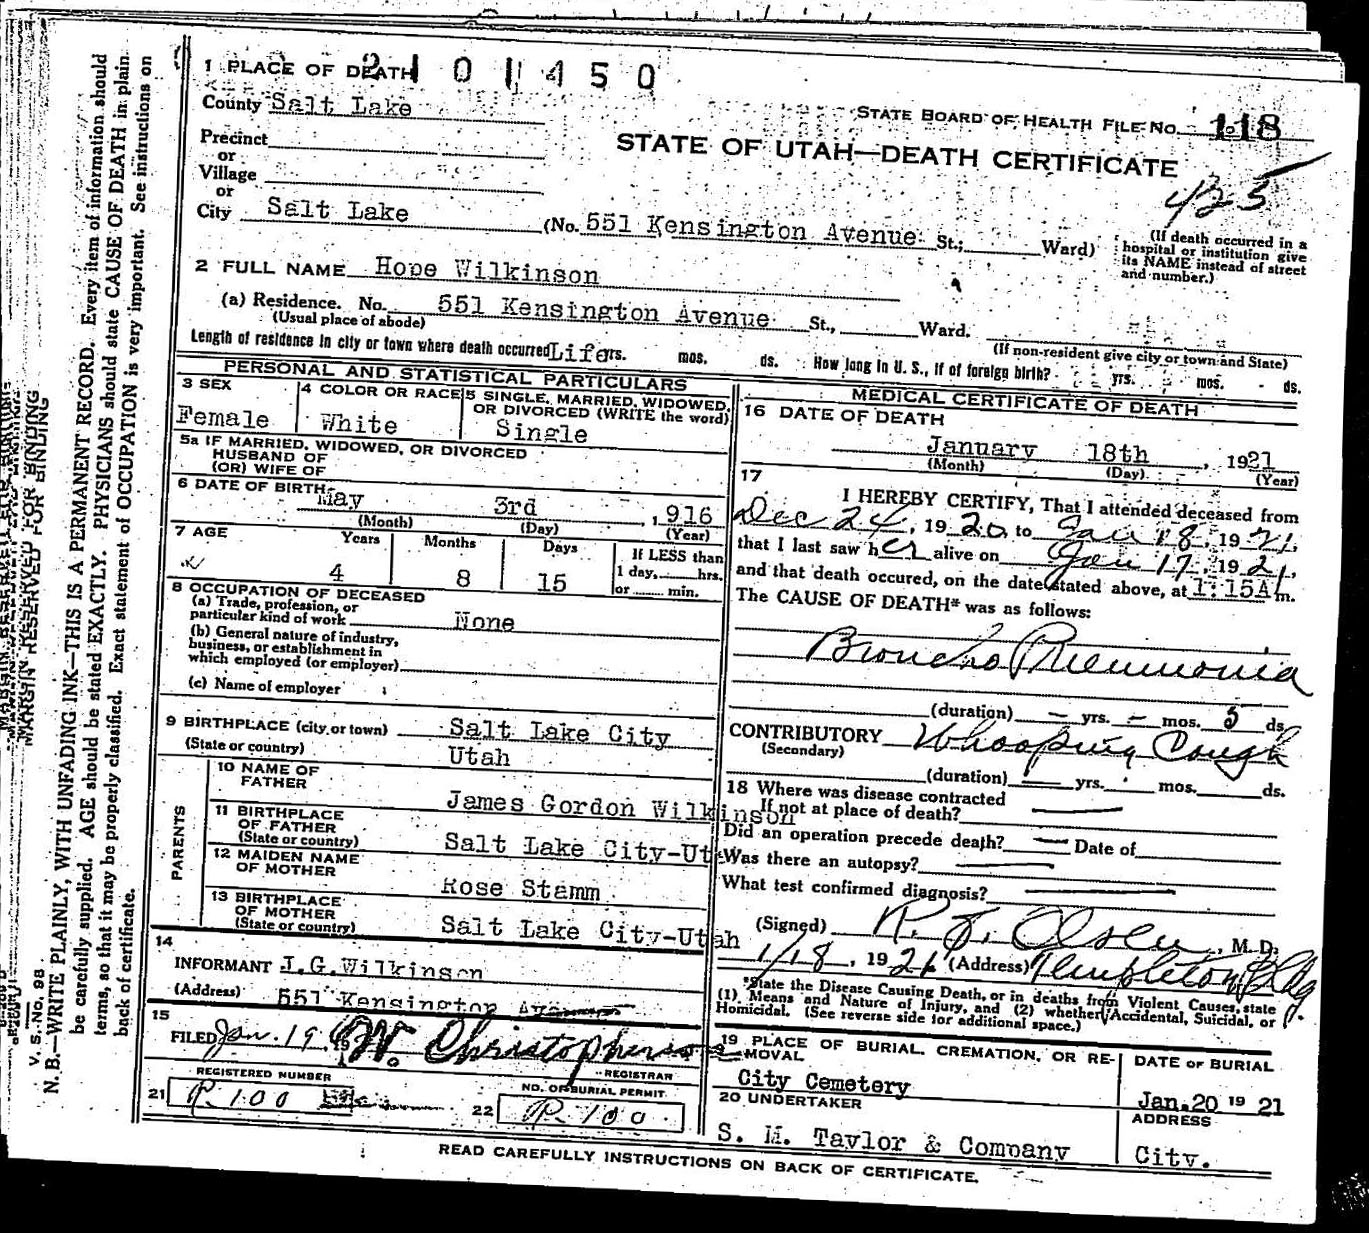 1 PLACE OF DEATH 2101450
County Salt Lake
STATE BOARD OF HEALTH FILE NO. 118
Precinct
or
Village
or
City Salt Lake
STATE OF UTAH—DEATH CERTIFICATE
425
(No. 551 Kensington Avenue St.; Ward)
(If death occurred in a
hospital or institution give
its NAME instead of street
and number.)
2 FULL NAME Hope Wilkinson
(a) Residence. No. 551 Kensington Avenue St., Ward.
(Usual place of abode)
(If non-resident give city or town and State)
Length of residence in city or town where death occurred Life yrs. mos. ds. How long in U. S., if of foreign birth? yrs. mos. ds.
PERSONAL AND STATISTICAL PARTICULARS
3 SEX
Female
4 COLOR OR RACE
White
5 SINGLE, MARRIED, WIDOWED,
OR DIVORCED (WRITE the word)
Single
5a IF MARRIED, WIDOWED, OR DIVORCED
HUSBAND OF
(OR) WIFE OF
6 DATE OF BIRTH
May 3rd , 1916
(Month) (Day) (Year)
7 AGE Years Months Days
4 8 15
If LESS than
1 day, hrs.
or min.
8 OCCUPATION OF DECEASED
(a) Trade, profession, or
particular kind of work None
(b) General nature of industry,
business, or establishment in
which employed (or employer)
(c) Name of employer
9 BIRTHPLACE (city or town) Salt Lake City
(State or country) Utah
PARENTS
10 NAME OF
FATHER
James Gordon Wilkinson
11 BIRTHPLACE
OF FATHER
(State or country) Salt Lake City-Ut
12 MAIDEN NAME
OF MOTHER
Rose Stamm
13 BIRTHPLACE
OF MOTHER
(State or country) Salt Lake City-Utah
14
INFORMANT J.G.Wilkinson
(Address) 551 Kensington Avenue
15
FILED Jan. 19, 19 W. Christopherson
REGISTRAR
REGISTERED NUMBER
21 R 100
NO. OF BURIAL PERMIT
22 R 100
MEDICAL CERTIFICATE OF DEATH
16 DATE OF DEATH
January 18th , 1921
(Month) (Day) (Year)
17
I HEREBY CERTIFY, That I attended deceased from
Dec 24, 1920 to Jan 18, 1921,
that I last saw her alive on Jan 17, 1921,
and that death occured, on the date stated above, at 1:15A m.
The CAUSE OF DEATH* was as follows:
Broncho Pneumonia
(duration) — yrs. — mos. 5 ds
CONTRIBUTORY Whooping Cough
(Secondary)
(duration) — yrs. mos. ds.
18 Where was disease contracted
If not at place of death? —
Did an operation precede death? — Date of
Was there an autopsy? —
What test confirmed diagnosis? —
(Signed) R. J. Olsen, M. D.
1/18, 1921 (Address) Templeton Bldg.
*State the Disease Causing Death, or in deaths from Violent Causes, state
(1) Means and Nature of Injury, and (2) whether Accidental, Suicidal, or
Homicidal. (See reverse side for additional space.)
19 PLACE OF BURIAL, CREMATION, OR RE-
MOVAL
City Cemetery
DATE OF BURIAL
Jan.20 19 21
20 UNDERTAKER
S. M. Taylor & Company
ADDRESS
City.
READ CAREFULLY INSTRUCTIONS ON BACK OF CERTIFICATE.
MARGIN RESERVED FOR BINDING
V. S. No. 98
N. B.—WRITE PLAINLY, WITH UNFADING INK—THIS IS A PERMANENT RECORD. Every item of information should
be carefully supplied. AGE should be stated EXACTLY. PHYSICIANS should state CAUSE OF DEATH in plain
terms, so that it may be properly classified. Exact statement of OCCUPATION is very important. See instructions on
back of certificate.